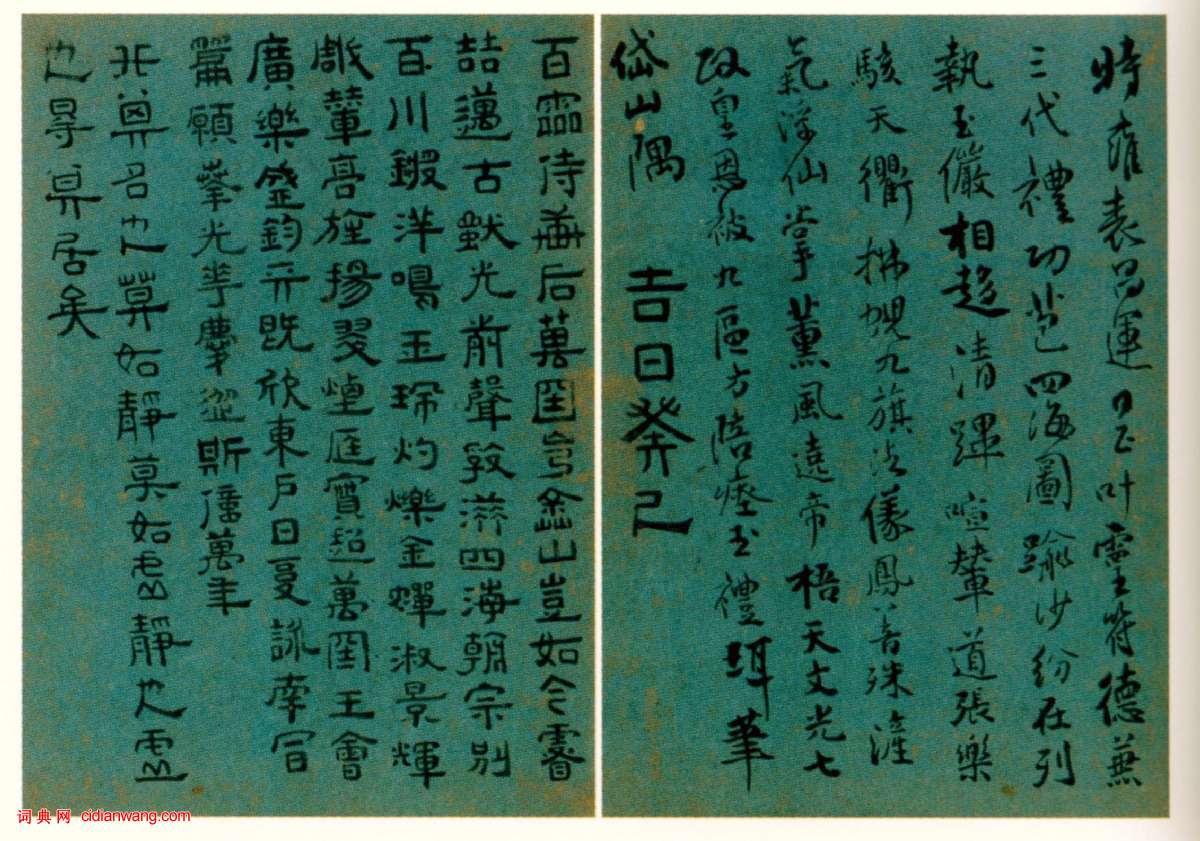 時雍表昌運日正叶靈符德兼
三代禮功苞四海圖踰沙紛在列
執玉儼相趍清蹕喧輦道張樂
駭天衢拂蜺九旗儀鳳音殊
氣浮仙掌薰風遶帝梧天文光七
政皇恩被九區方陪瘞玉禮珥筆
岱山隅 吉日癸巳
百靈侍軒后萬國會塗山豈如今睿
喆邁古獣光前聲教溢四海朝宗別
百川鏘洋鳴玉珮灼爍金蟬淑景輝
彫輦高旌揚翠煙庭實超萬國王會
廣樂盛鈞天既欣東戶日夏詠南風
篇願奉光華慶從斯億萬年
名也莫如靜莫如虛靜也虛
也得其居矣
词典网 cidianwang.com